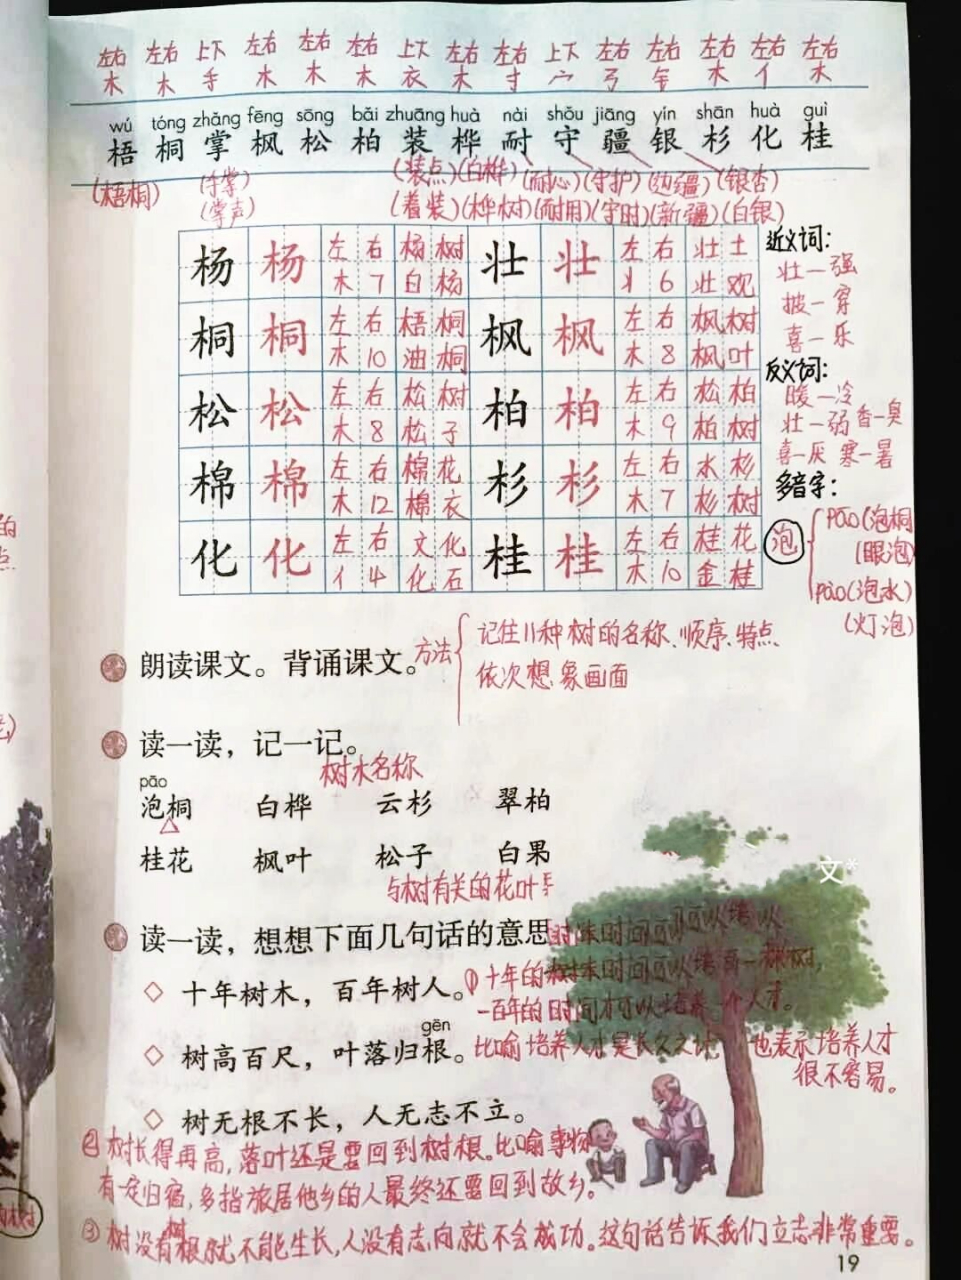 左右 左右 上下 左右 左右 左右 上下 左右 左右 上下 左右 左右 左右 左右 左右
木 木 手 木 木 木 衣 木 寸 宀 弓 钅 木 亻 木
wú tóng zhǎng fēng sōng bǎi zhuāng huà nài shǒu jiāng yín shān huà guì
梧 桐 掌 枫 松 柏 装 桦 耐 守 疆 银 杉 化 桂
(梧桐) (手掌) (装点) (白桦) (耐心) (守护) (边疆) (银杏)
(掌声) (着装) (桦树) (耐用) (守时) (新疆) (白银)
杨 杨 左右 杨树 壮 壮 左右 壮士
木 7 白杨 丬 6 壮观
桐 桐 左右 梧桐 枫 枫 左右 枫树
木 10 油桐 木 8 枫叶
松 松 左右 松树 柏 柏 左右 松柏
木 8 松子 木 9 柏树
棉 棉 左右 棉花 杉 杉 左右 水杉
木 12 棉衣 木 7 杉树
化 化 左右 文化 桂 桂 左右 桂花
亻 4 化石 木 10 金桂
近义词:
壮—强
披—穿
喜—乐
反义词:
暖—冷
壮—弱 香—臭
喜—厌 寒—暑
多音字:
泡 pāo(泡桐
(眼泡)
pào(泡水)
(灯泡)
朗读课文。背诵课文。
方法 记住11种树的名称、顺序、特点
依次想象画面
读一读，记一记。
树木名称
pāo
泡桐 白桦 云杉 翠柏
桂花 枫叶 松子 白果
与树有关的花叶
读一读，想想下面几句话的意思
十年树木，百年树人。
①十年的时间可以培育一棵树,
一百年的时间才可以培养一个人才。
比喻培养人才是长久之计 也表示培养人才
很不容易。
gēn
树高百尺，叶落归根。
树无根不长，人无志不立。
②树长得再高,落叶还是要回到树根。比喻事物
有一定归宿,多指旅居他乡的人最终还要回到故乡。
③树没有树根就不能生长,人没有志向就不会成功。这句话告诉我们立志非常重要。
文
19